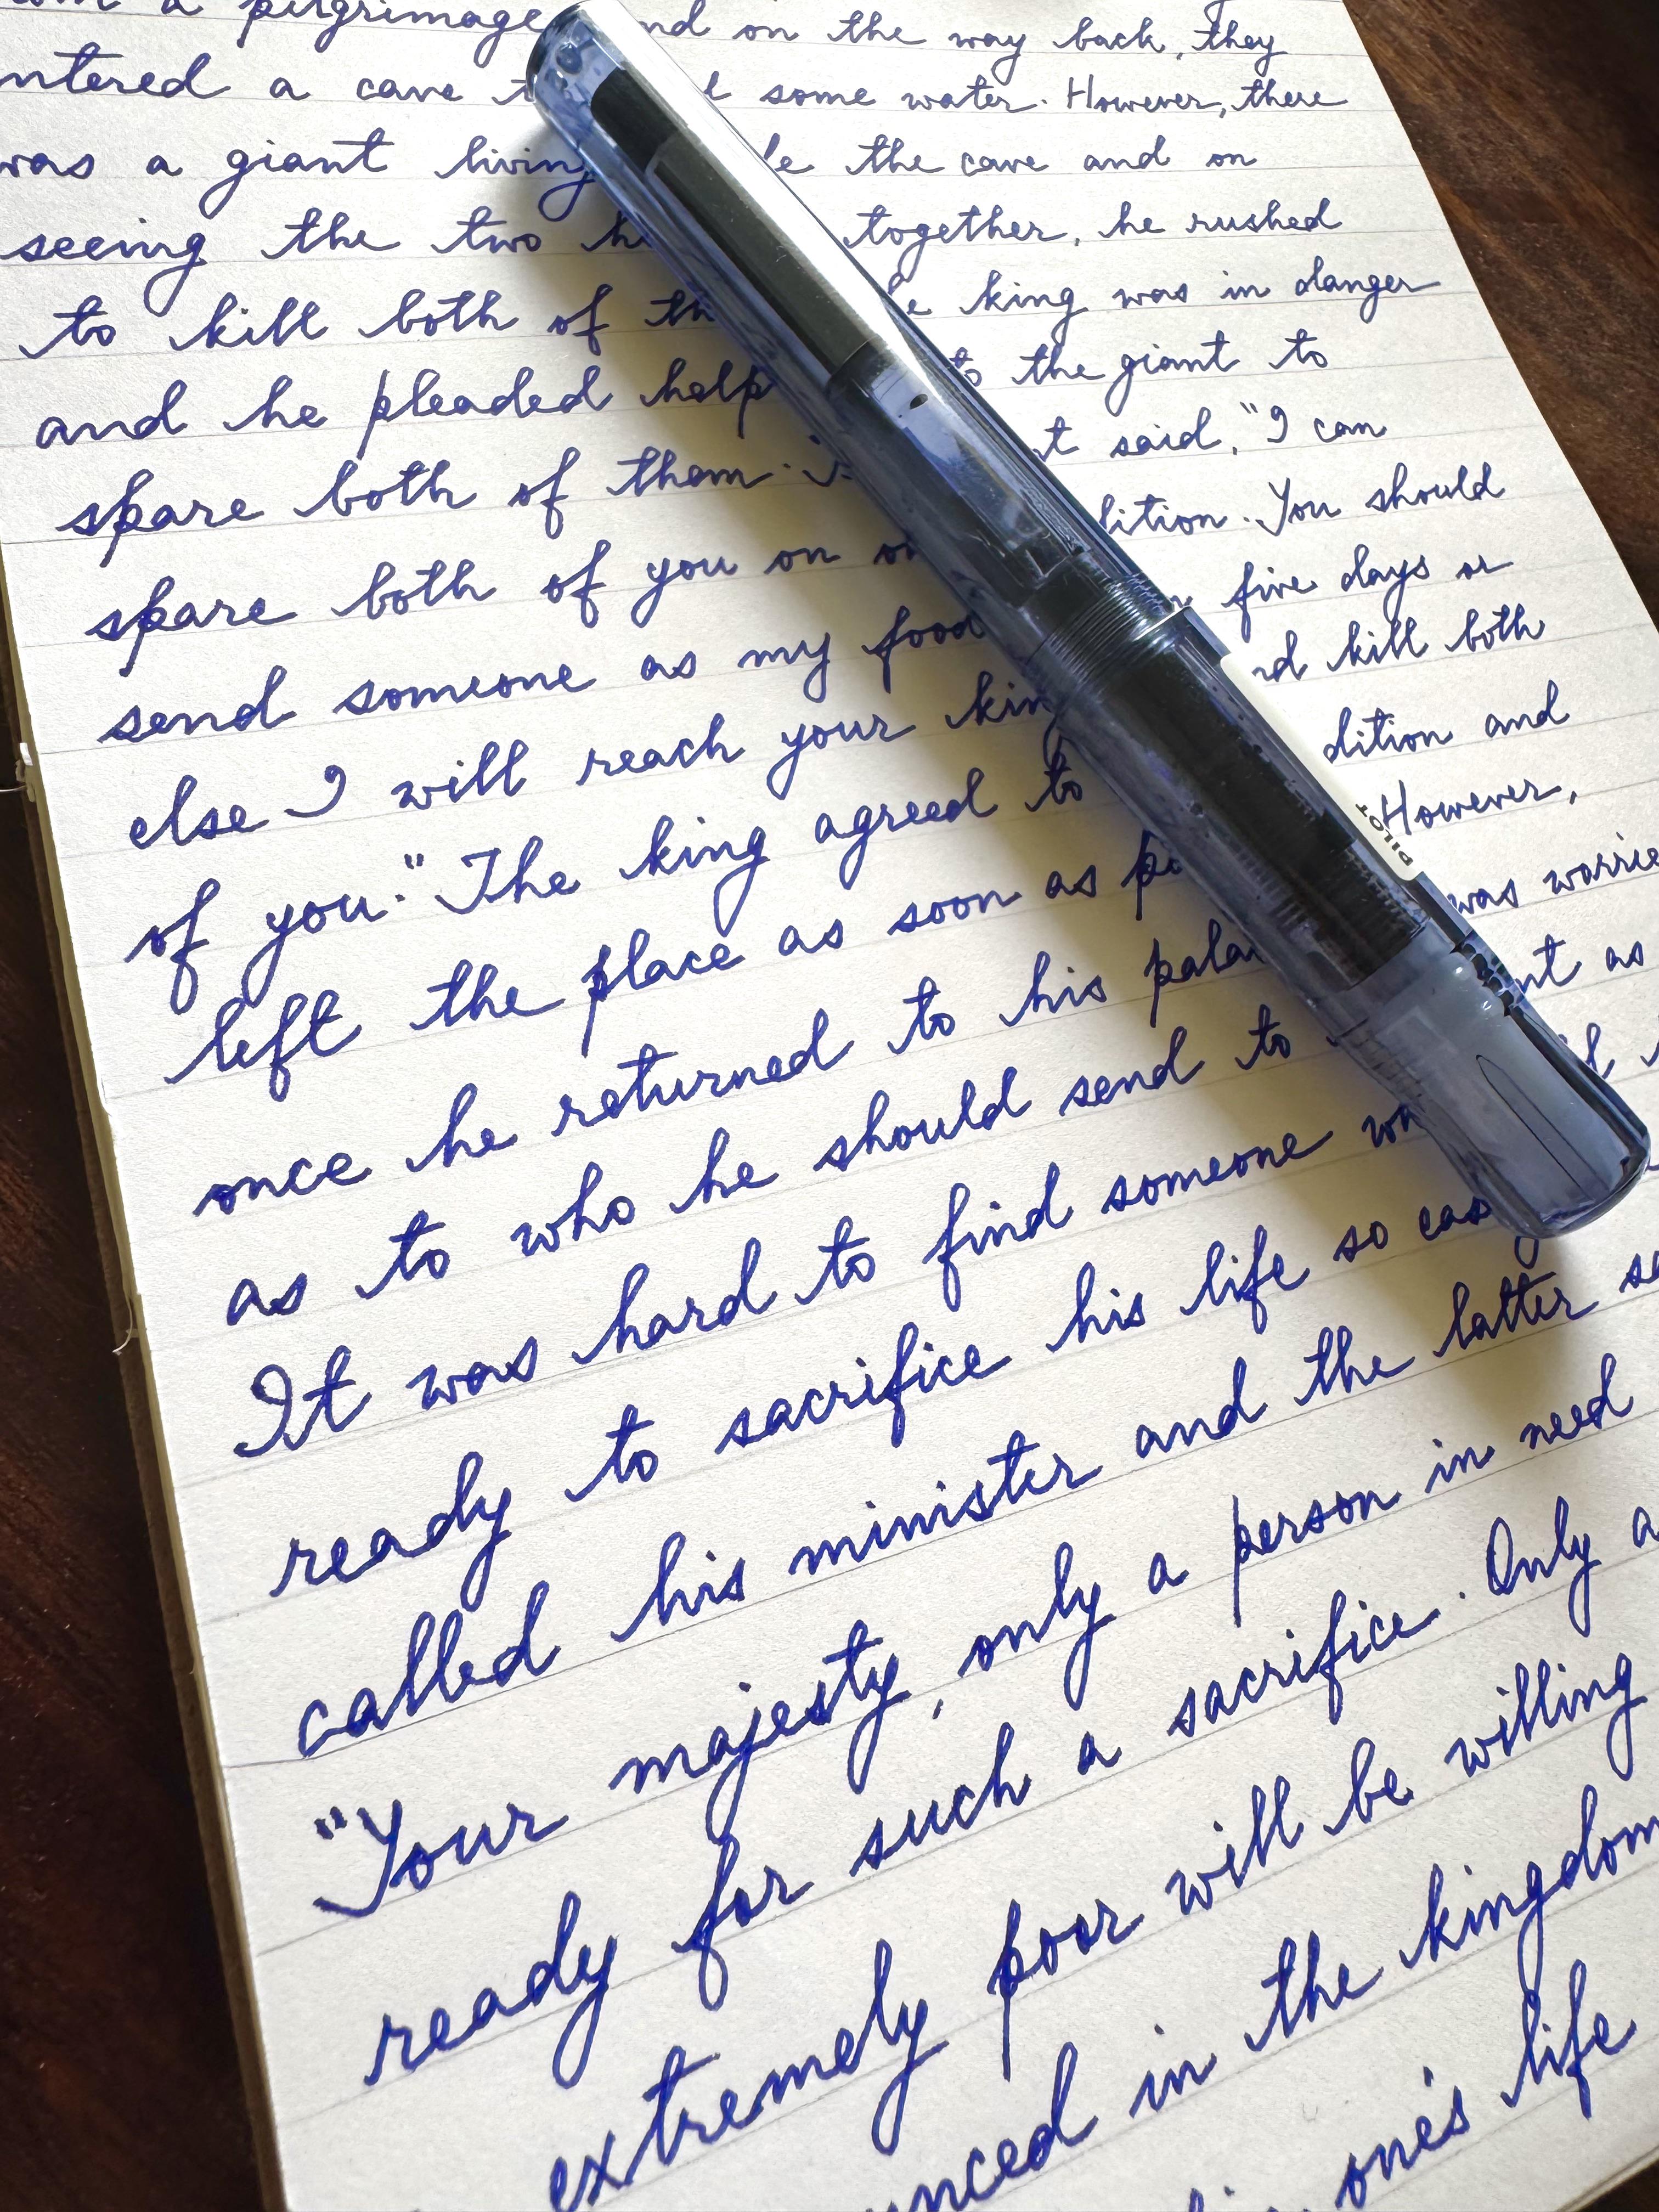 a pilgrimage and on the way back, they
entered a cave some water. However, there
was a giant living the cave and on
seeing the two together, he rushed
to kill both of king was in danger
and he pleaded help to the giant to
spare both of them. said, "I can
spare both of you on You should
send someone as my food five days or
else I will reach your and kill both
of you." The king agreed to and
left the place as soon as However,
once he returned to his was
as to who he should send to as
It was hard to find someone
ready to sacrifice his life so
called his minister and the latter
"Your majesty, only a person in need
ready for such a sacrifice. Only
extremely poor will be willing
in the kingdom
one's life
PILOT